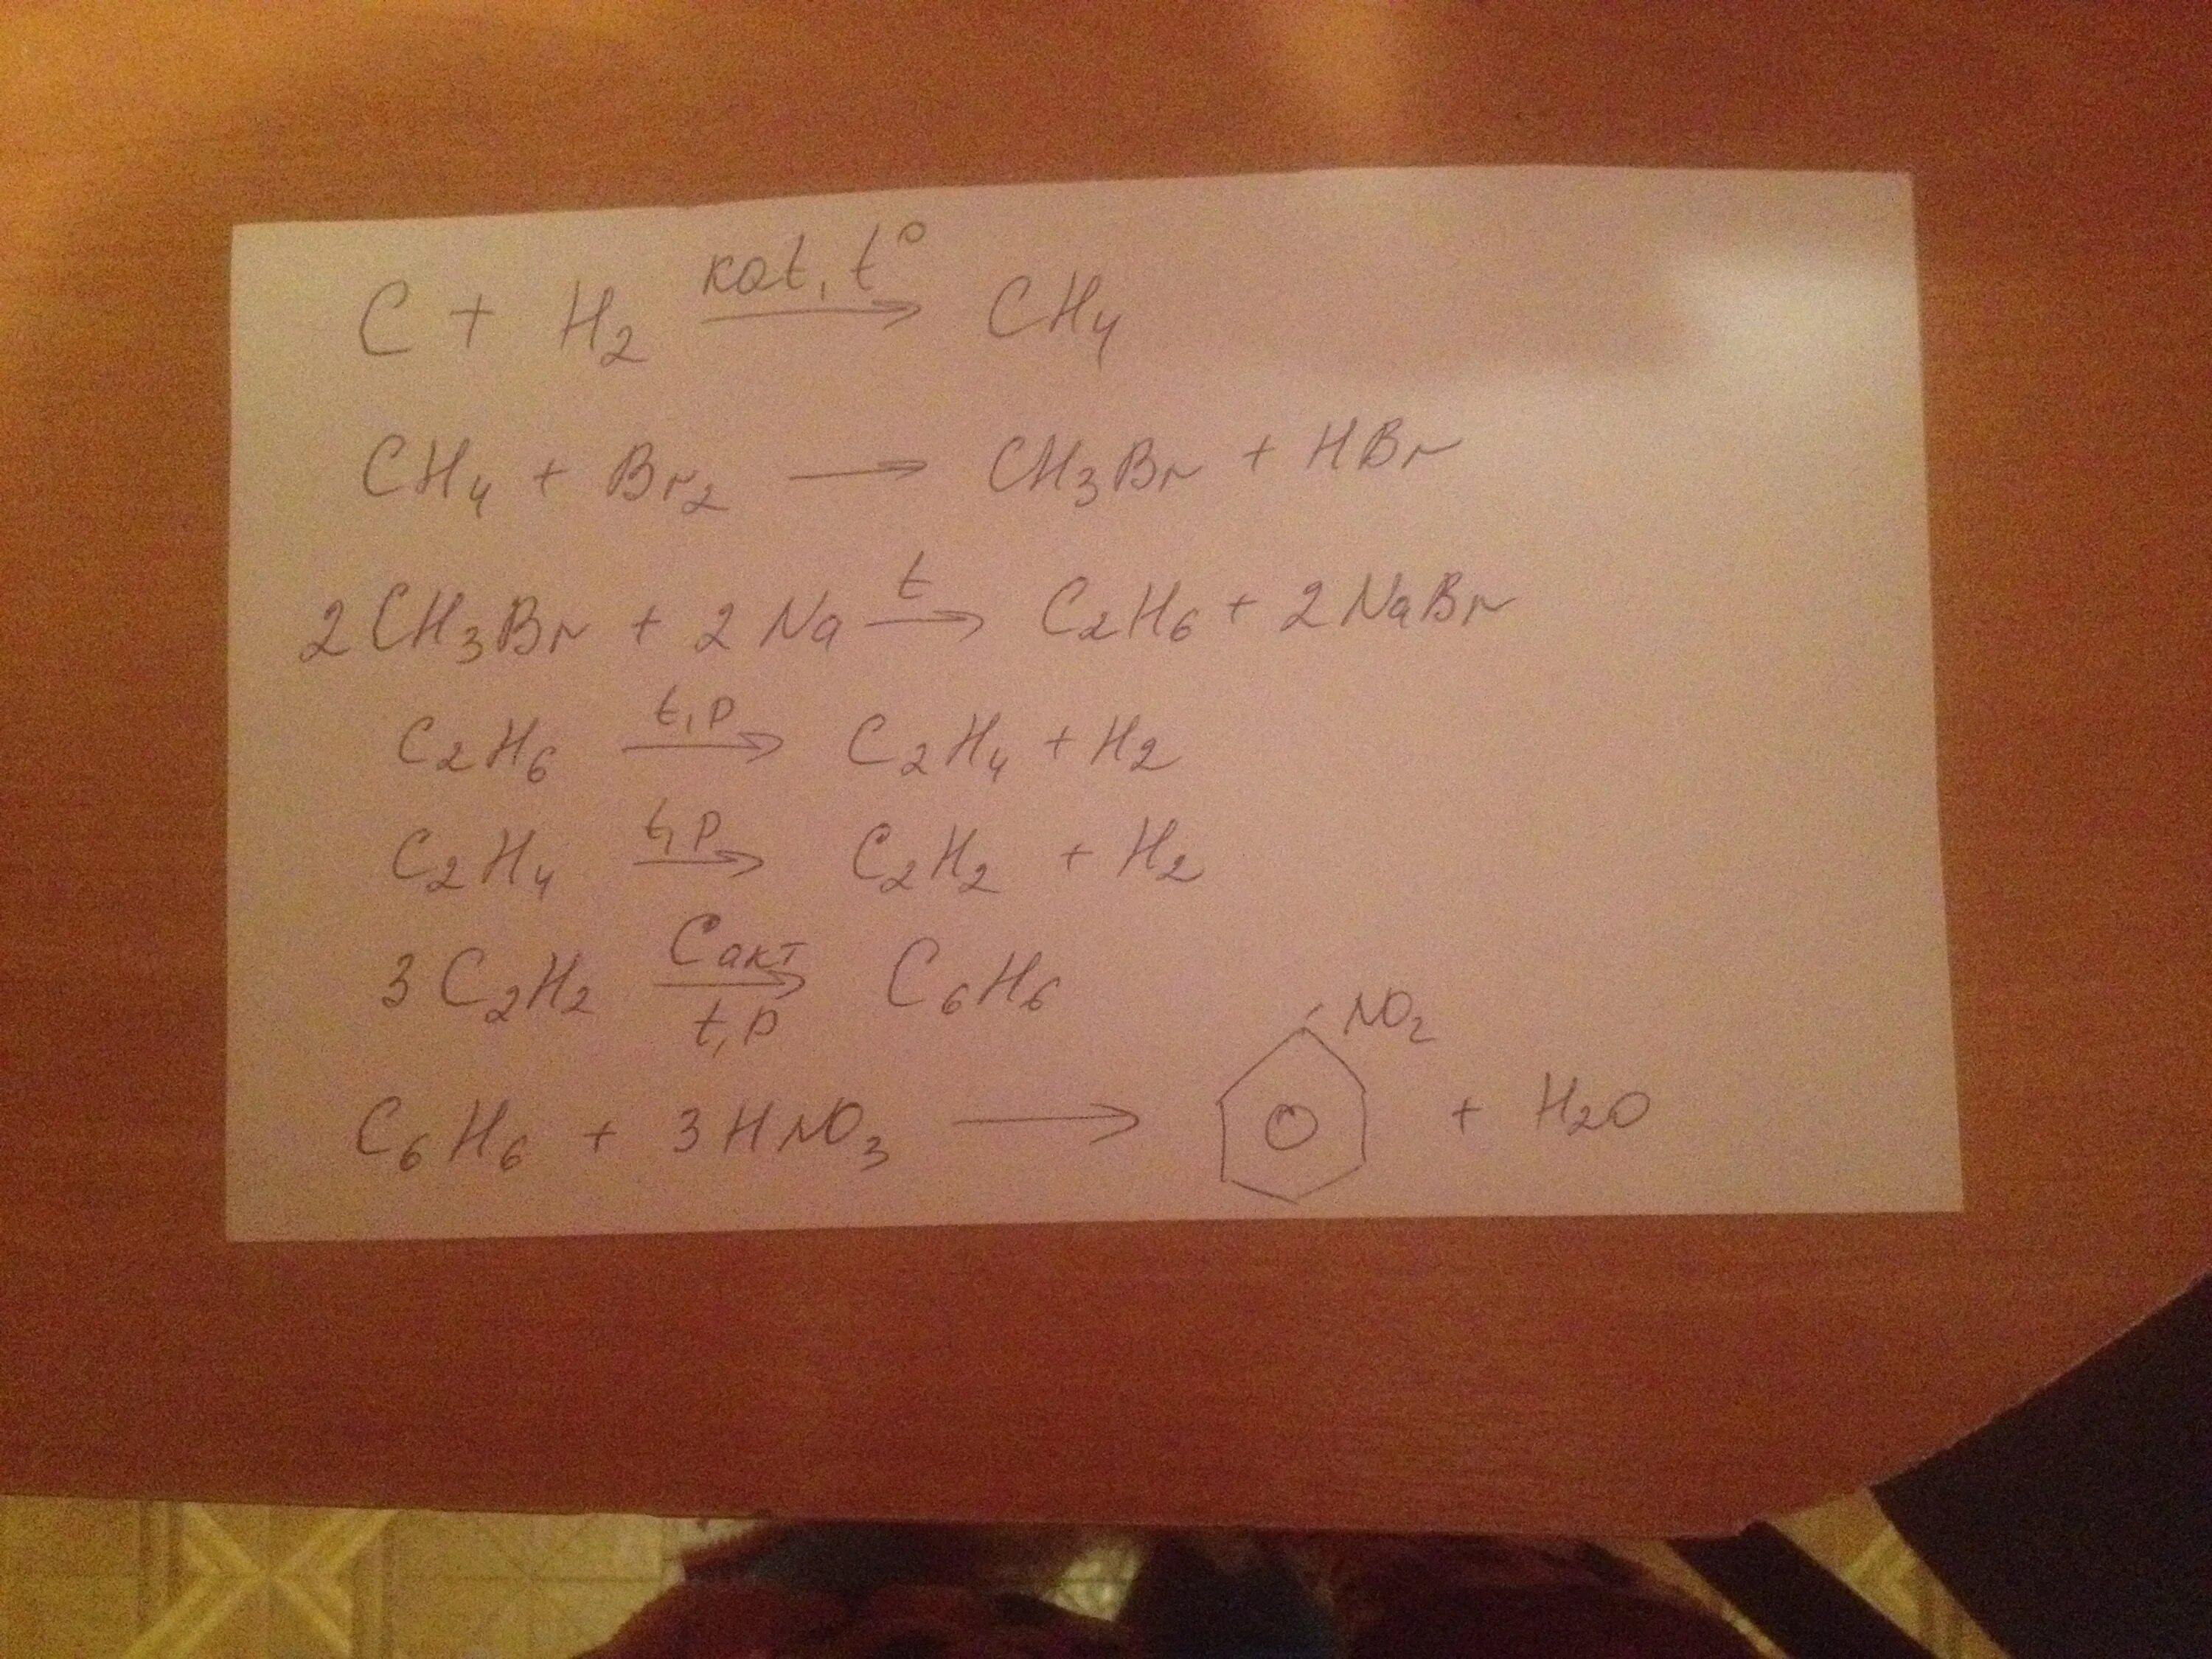 C + H₂ —кат, t°→ CH₄
CH₄ + Br₂ ⟶ CH₃Br + HBr
2CH₃Br + 2Na —t→ C₂H₆ + 2NaBr
C₂H₆ —t, p→ C₂H₄ + H₂
C₂H₄ —t, p→ C₂H₂ + H₂
3C₂H₂ —Cакт / t, p→ C₆H₆
C₆H₆ + 3HNO₃ ⟶ NO₂ + H₂O